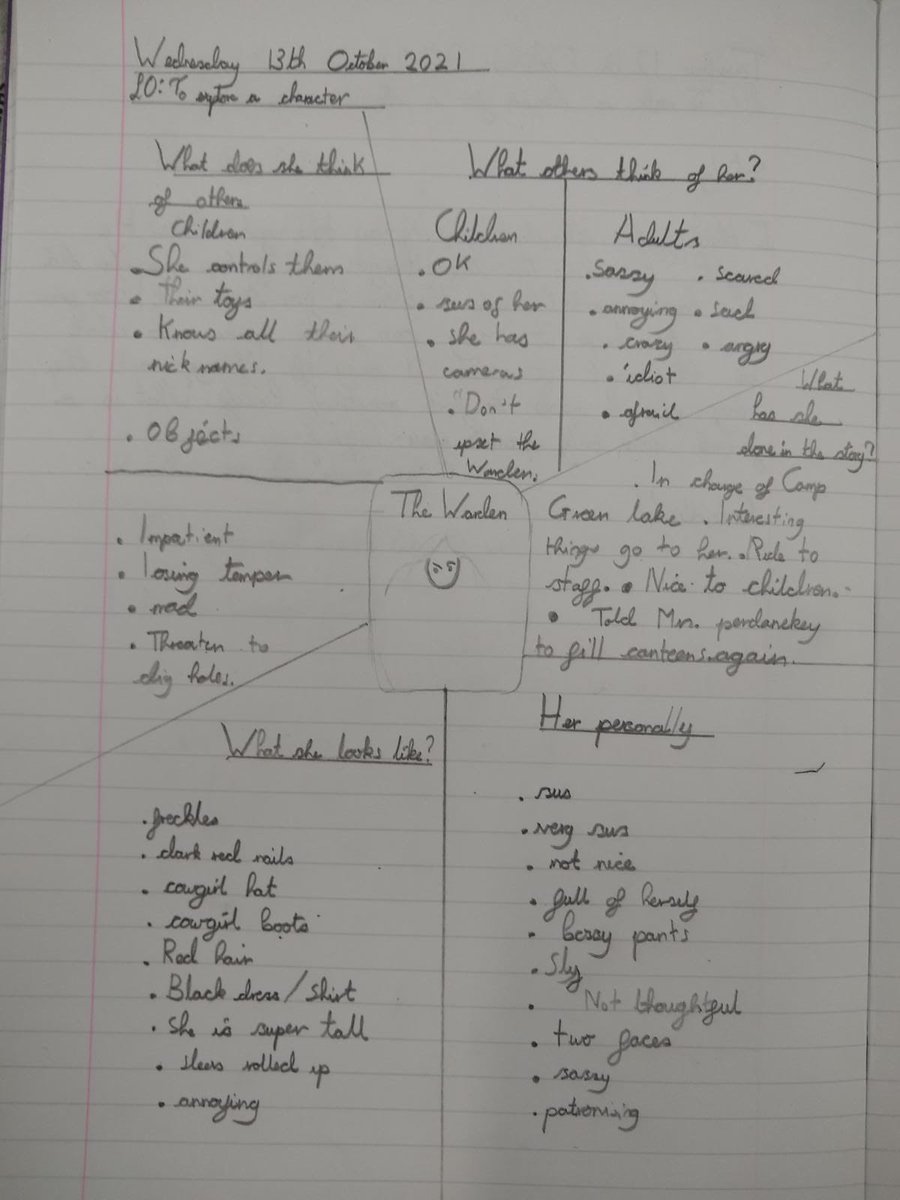 Wednesday 13th October 2021
LO: To explore a character
What does she think
of others
Children
• She controls them
• Their toys
• Knows all their
nick names.
• OBjects
What others think of her?
Children
• OK
• sus of her
• she has
cameras
• "Don't
upset the
Warden.
Adults
• Sassy • scared
• annoying • sad
• crazy • angry
• idiot
• afraid
What
has she
done in the story?
• In charge of Camp
Green lake • Interesting
things go to her. • Rude to
staff. • Nice to children.
• Told Mr. pendanskey
to fill canteens again.
The Warden
• Impatient
• losing temper
• mad
• Threaten to
dig holes.
What she looks like?
• freckles
• dark red nails
• cowgirl hat
• cowgirl boots
• Red hair
• Black dress/shirt
• She is super tall
• sleevs rolled up
• annoying
Her personally
• sus
• very sus
• not nice
• full of herself
• bossy pants
• Sly
• Not thoughtful
• two faces
• sassy
• patronising